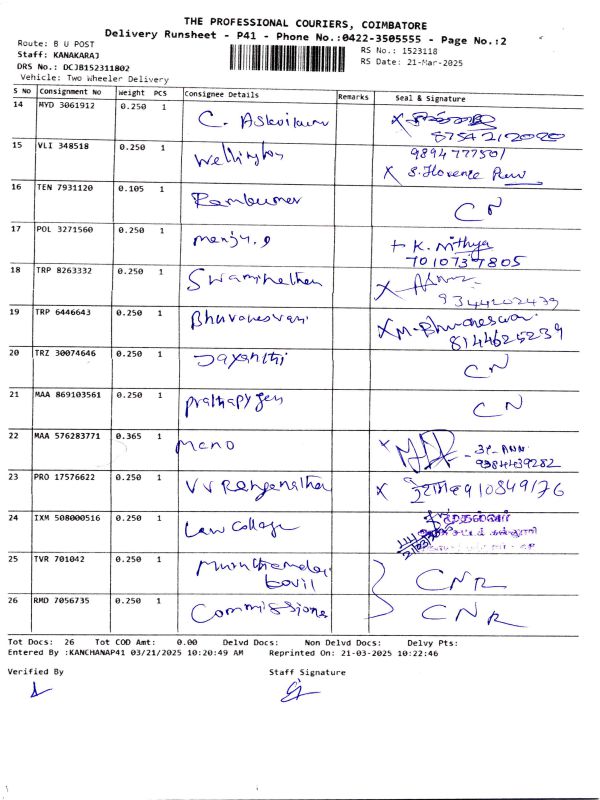 THE PROFESSIONAL COURIERS, COIMBATORE
Delivery Runsheet - P41 - Phone No.:0422-3505555 - Page No.:2
Route: B U POST
RS No.: 1523118
Staff: KANAKARAJ
RS Date: 21-Mar-2025
DRS No.: DCJB152311802
Vehicle: Two Wheeler Delivery
S No Consignment No Weight PCS Consignee Details Remarks Seal & Signature
14 MYD 3061912 0.250 1 C. 8754212020
15 VLI 348518 0.250 1 Wellington 9894777501
X S. Florence
16 TEN 7931120 0.105 1 CN
17 POL 3271560 0.250 1 Manju. + K. Nithya
7010737805
18 TRP 8263332 0.250 1 Swaminathan X
9344202479
19 TRP 6446643 0.250 1 Bhuvaneswari X M. Bhuvaneswari
8144625239
20 TRZ 30074646 0.250 1 Jayanthi CN
21 MAA 869103561 0.250 1 CN
22 MAA 576283771 0.365 1 Mano X
9384439282
23 PRO 17576622 0.250 1 V V Renganathan X 910849176
24 IXM 508000516 0.250 1 Law College
25 TVR 701042 0.250 1 CNR
26 RMD 7056735 0.250 1 Commissioner CNR
Tot Docs: 26 Tot COD Amt: 0.00 Delvd Docs: Non Delvd Docs: Delvy Pts:
Entered By :KANCHANAP41 03/21/2025 10:20:49 AM Reprinted On: 21-03-2025 10:22:46
Verified By Staff Signature